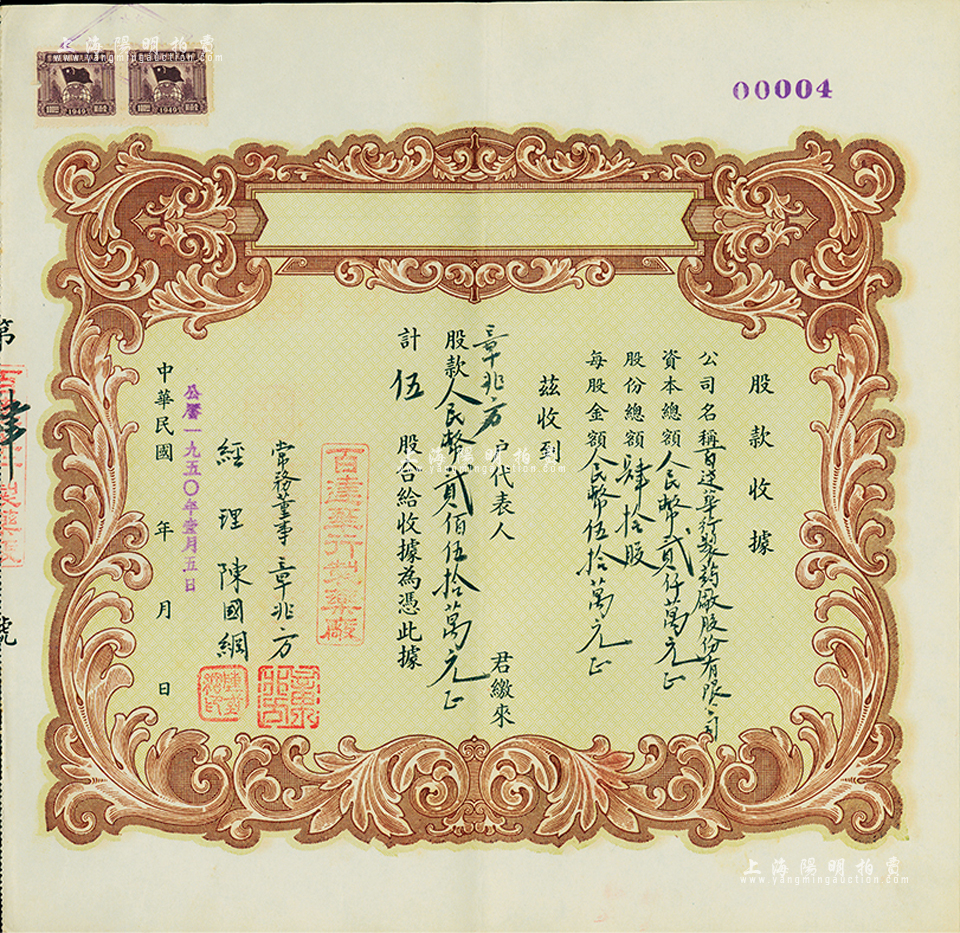 上海陽明拍賣
www.yangmingauction.com
1949
1949
00004
股款收據
公司名稱百達華行製药廠股份有限公司
資本總額人民幣貳仟萬元正
股份總額肆拾股
每股金額人民幣伍拾萬元正
茲收到
章兆方戶代表人 君繳來
股款人民幣貳佰伍拾萬元正
計伍股合給收據為憑此據
百達華行製藥廠
常務董事章兆方
經理陳國綱
公曆一九五〇年壹月五日
中華民國 年 月 日
第肆號
上海陽明拍賣
www.yangmingauction.com
上海陽明拍賣
www.yangmingauction.com